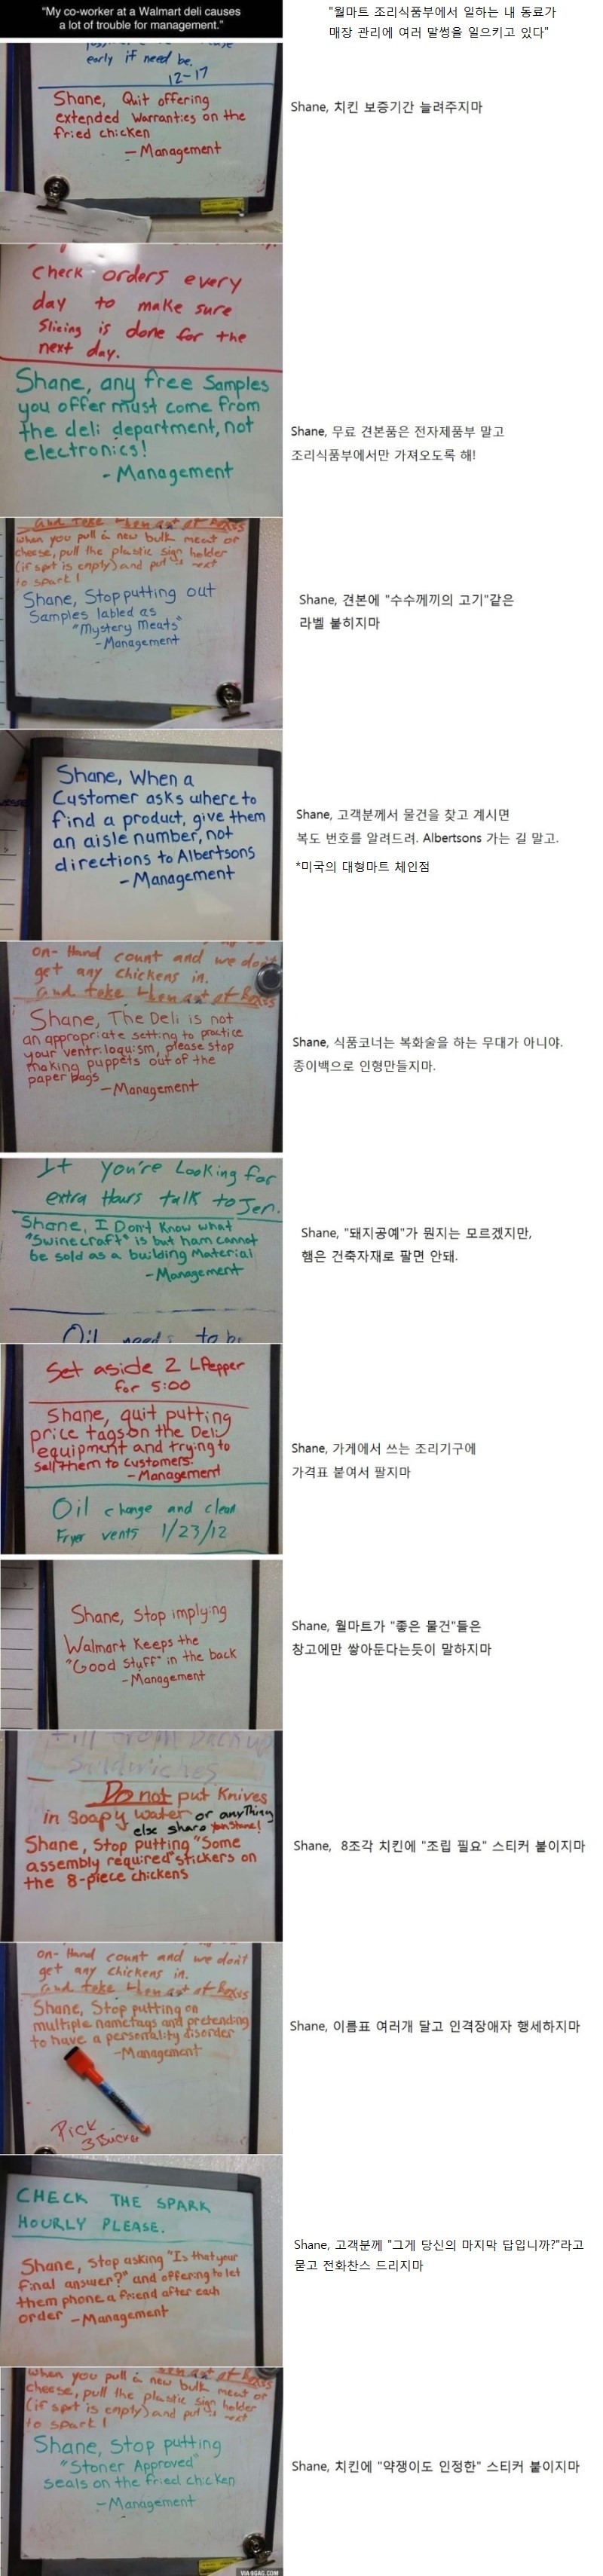 "My co-worker at a Walmart deli causes
a lot of trouble for management."
"월마트 조리식품부에서 일하는 내 동료가
매장 관리에 여러 말썽을 일으키고 있다"
early if need be.
12-17
Shane, Quit offering
extended warranties on the
fried chicken
- Management
Shane, 치킨 보증기간 늘려주지마
Check orders every
day to make sure
Slicing is done for the
next day.
Shane, any free Samples
you offer must come from
the deli department, not
electronics!
- Management
Shane, 무료 견본품은 전자제품부 말고
조리식품부에서만 가져오도록 해!
and take them out of Boxes
when you pull a new bulk meat or
cheese, pull the plastic sign holder
(if spot is empty) and put it next
to spark!
Shane, Stop putting out
Samples labled as
"Mystery Meats"
- Management
Shane, 견본에 "수수께끼의 고기"같은
라벨 붙히지마
Shane, When a
Customer asks where to
find a product, give them
an aisle number, not
directions to Albertsons
- Management
Shane, 고객분께서 물건을 찾고 계시면
복도 번호를 알려드려. Albertsons 가는 길 말고.
*미국의 대형마트 체인점
on-Hand count and we don't
get any chickens in.
and take them out of Boxes
Shane, The Deli is not
an appropriate setting to practice
your ventriloquism, please stop
making puppets out of the
paper bags
- Management
Shane, 식품코너는 복화술을 하는 무대가 아니야.
종이백으로 인형만들지마.
If you're Looking for
extra Hours talk to Jen.
Shane, I Don't Know what
"Swinecraft" is but ham cannot
be sold as a building Material
- Management
Oil needs to be
Shane, "돼지공예"가 뭔지는 모르겠지만,
햄은 건축자재로 팔면 안돼.
Set aside 2 LPepper
for 5:00
Shane, quit putting
price tags on the Deli
equipment and trying to
sell them to customers.
- Management
Oil change and clean
Fryer vents 1/23/12
Shane, 가게에서 쓰는 조리기구에
가격표 붙여서 팔지마
Shane, Stop implying
Walmart Keeps the
"Good Stuff" in the back
- Management
Shane, 월마트가 "좋은 물건"들은
창고에만 쌓아둔다는듯이 말하지마
Sandwiches
Do not put Knives
in Soapy water or anything
else sharp
Shane, Stop putting "Some
assembly required" stickers on
the 8-piece chickens
Shane, 8조각 치킨에 "조립 필요" 스티커 붙이지마
on-Hand count and we don't
get any chickens in.
and take them out of Boxes
Shane, Stop putting on
multiple nametags and pretending
to have a personality disorder
- Management
Pick
3 Bucket
Shane, 이름표 여러개 달고 인격장애자 행세하지마
CHECK THE SPARK
HOURLY PLEASE.
Shane, Stop asking "Is that your
final answer?" and offering to let
them phone a friend after each
order - Management
Shane, 고객분께 "그게 당신의 마지막 답입니까?"라고
묻고 전화찬스 드리지마
when you pull a new bulk meat or
cheese, pull the plastic sign holder
(if spot is empty) and put it next
to spark!
Shane, Stop putting
"Stoner Approved"
seals on the fried chicken
- Management
Shane, 치킨에 "약쟁이도 인정한" 스티커 붙이지마
VIA 9GAG.COM